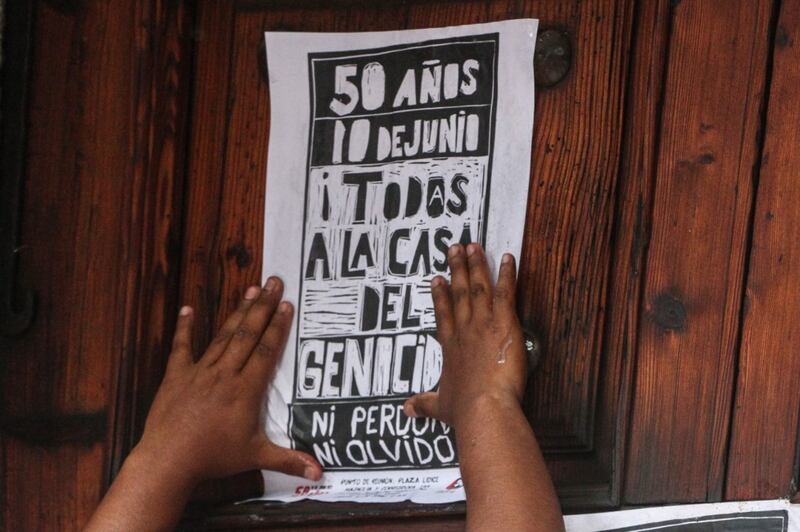 50 AÑOS
10 DE JUNIO
¡TODAS
A LA CASA
DEL
GENOCID
NI PERDON
NI OLVIDO
PUNTO DE REUNIÓN: PLAZA LIENCE